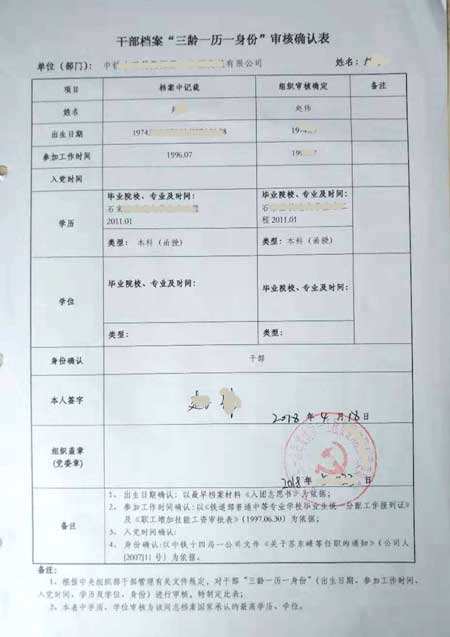 干部档案“三龄一历一身份”审核确认表
单位（部门）： 中铁 有限公司 姓名：
项目 档案中记载 组织审核确定 备注
姓名 赵伟
出生日期 1974. 19
参加工作时间 1996.07 199
入党时间
学历 毕业院校、专业及时间： 毕业院校、专业及时间：
石家 石
2011.01 程 2011.01
类型： 本科（函授） 类型：本科（函授）
学位 毕业院校、专业及时间： 毕业院校、专业及时间：
类型： 类型：
身份确认 干部
本人签字
2018 年 4 月 18 日
组织盖章
(党委章)
2018 日
备注
1、 出生日期确认：以最早档案材料《入团志愿书》为依据；
2、 参加工作时间确认：以《铁道部普通中等专业学校毕业生统一分配工作报到证》
及《职工增加技能工资审批表》（1997.06.30）为依据；
3、 入党时间确认：
4、 身份确认：以中铁十四局一公司文件《关于苏东峰等任职的通知》（公司人
[2007]11 号）为依据。
备注：
1、根据中央组织部干部管理有关文件规定，对干部“三龄一历一身份”（出生日期、参加工作时间、
入党时间、学历及学位、身份）进行审核，特制定此表；
3、本表中学历、学位审核为该同志档案国家承认的最高学历、学位。